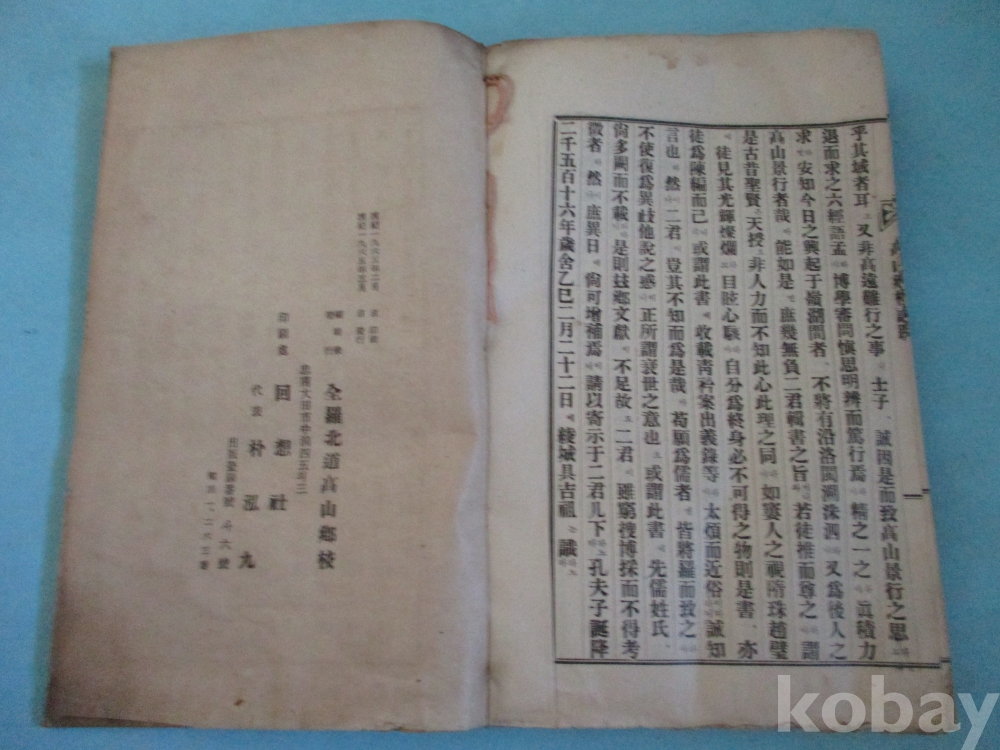 乎其域者耳 又非高遠難行之事 士子 誠因是而致高山景行之思
遇而求之六經語孟 博學審問愼思明辨而篤行焉 精之一之 眞積力
求 安知今日之興起于嶺湖間者 不將有沿洛閩溯洙泗 又爲後人之
高山景行者哉 能如是 庶幾無負二君輯書之旨 若徒推而尊之 謂
是古昔聖賢 天授 非人力而不知此心此理之同 如窶人之視隋珠趙璧
徒見其光輝燦爛 目眩心駭 自分爲終身必不可得之物則是書 亦
徒爲陳編而已 或謂此書 收載靑衿案出義錄等 太煩而近俗 誠知
言也 然 二君 豈其不知而爲是哉 苟願爲儒者 皆將羅而致之
不使復爲異歧他說之惑 正所謂衰世之意也 或謂此書 先儒姓氏
尙多闕而不載 是則玆鄕文獻 不足故 二君 雖窮搜博採而不得考
徵者 然 庶異日 尙可增補焉 請以寄示于二君几下 孔夫子誕降
二千五百十六年歲舍乙巳二月二十二日 綾城具吉祖 識
西紀一九六五年
西紀一九六五年
全羅北道高山鄕校
忠南大田市中洞四五
印刷處 回想社
代表 朴泓九
kobay